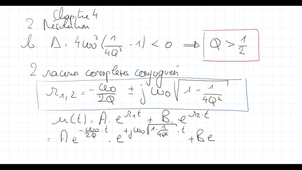 Chapitre 4
2 Résolution
b. Δ = 4ω₀² (1/4Q² - 1) < 0 ⟹ Q > 1/2
2 racines complexes conjuguées
r₁,₂ = -ω₀/2Q ± jω₀ √(1 - 1/4Q²)
u(t) = A e^{r₁t} + B e^{r₂t}
= A e^{-ω₀/2Q t} . e^{+jω₀√(1-1/4Q²) t} + B e